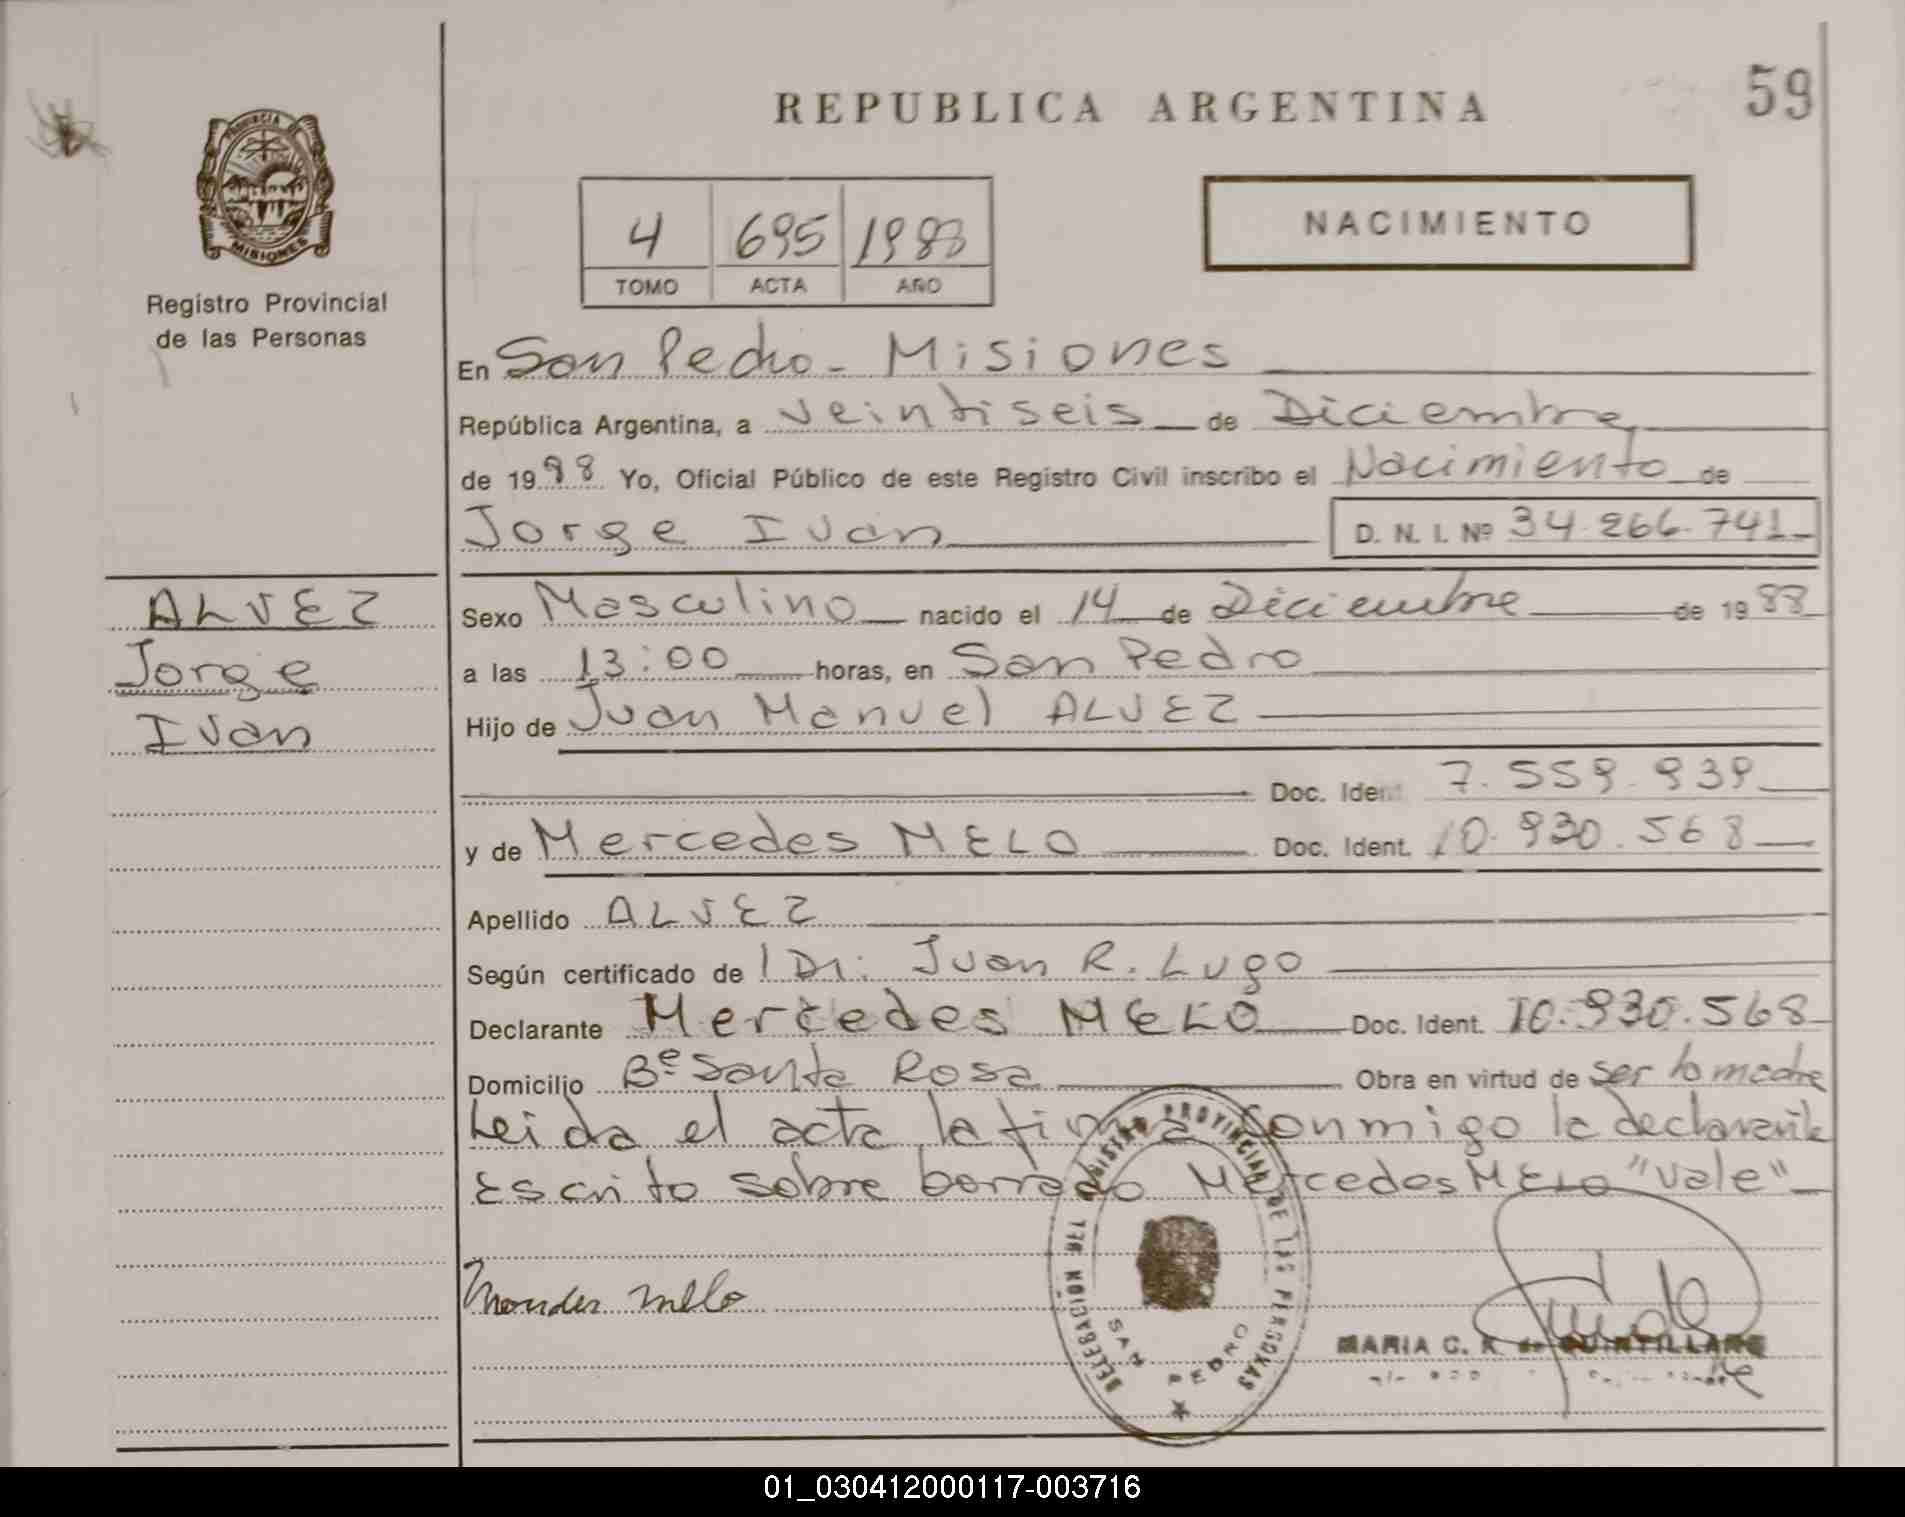 REPUBLICA ARGENTINA
59
PROVINCIA
MISIONES
Registro Provincial
de las Personas
4 695 1988
TOMO ACTA AÑO
NACIMIENTO
En San Pedro - Misiones
República Argentina, a veintiseis de Diciembre
de 1988 Yo, Oficial Público de este Registro Civil inscribo el Nacimiento de
Jorge Ivan D. N. I. Nº 34.266.741
ALVEZ
Jorge
Ivan
Sexo Masculino nacido el 14 de Diciembre de 1988
a las 13:00 horas, en San Pedro
Hijo de Juan Manuel ALVEZ
Doc. Ident. 7.559.939
y de Mercedes MELO Doc. Ident. 10.930.568
Apellido ALVEZ
Según certificado de Dr. Juan R. Lugo
Declarante Mercedes MELO Doc. Ident. 10.930.568
Domicilio Bº Santa Rosa Obra en virtud de ser la madre
Leida el acta la firma conmigo la declarante
Escrito sobre borrado Mercedes MELO "Vale"
REGISTRO PROVINCIAL DE LAS PERSONAS
DELEGACION
SAN PEDRO
Mercedes Melo
MARIA C. R. de QUINTILLANE
01_030412000117-003716